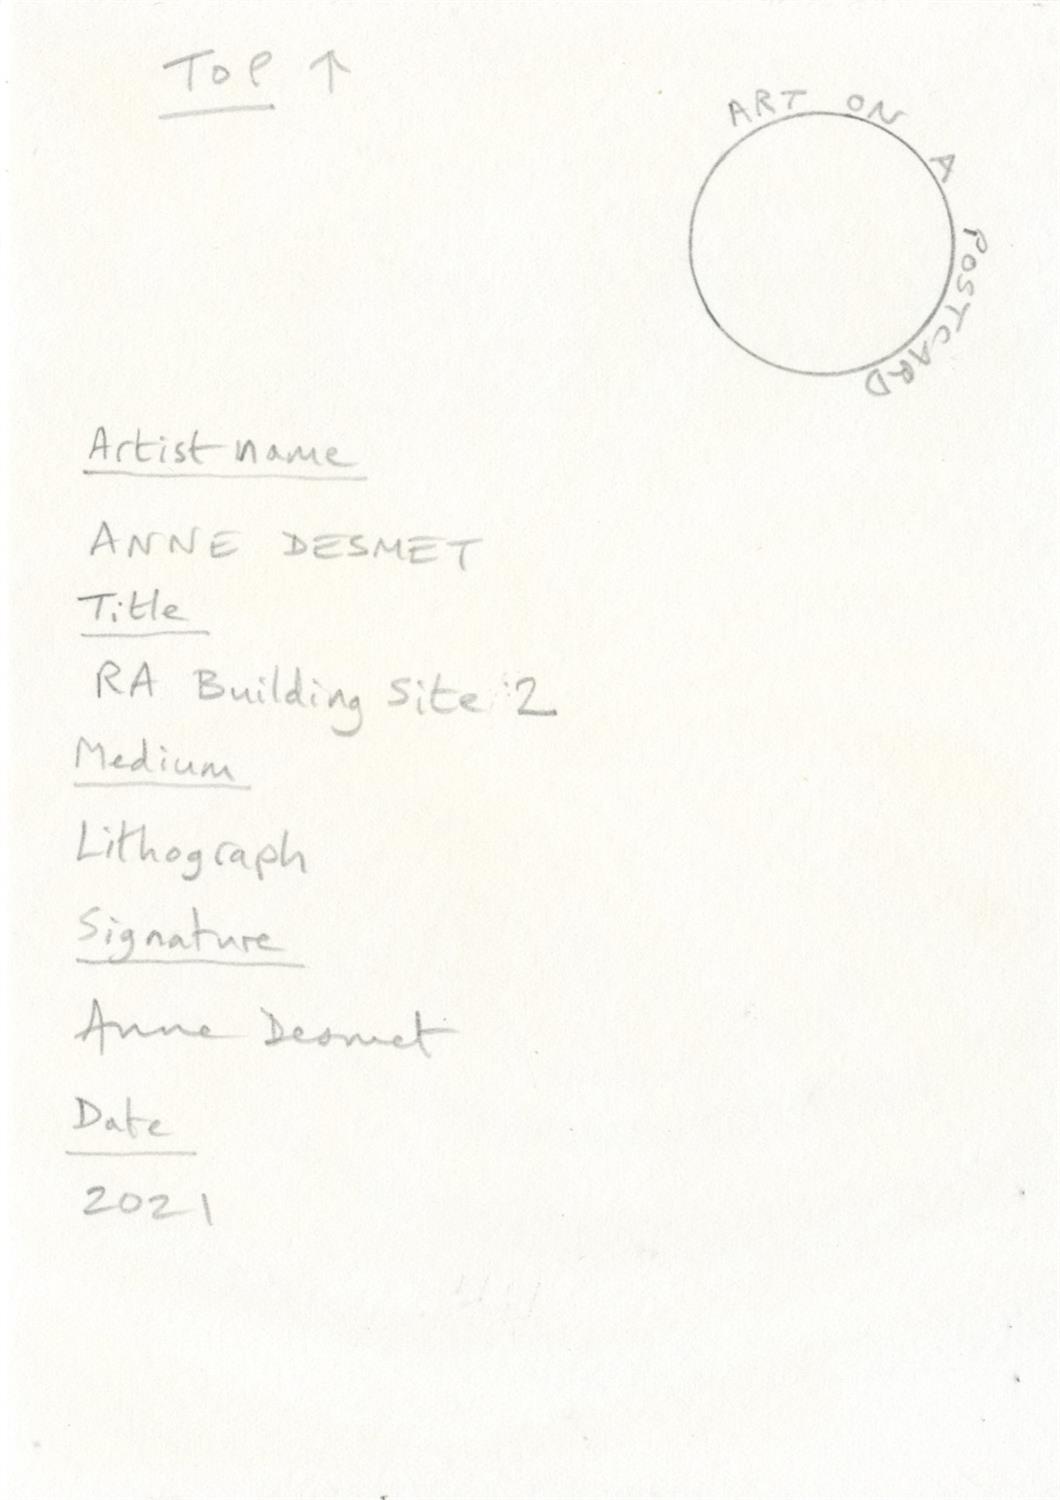 TOP ↑
ART ON A POSTCARD
Artist name
ANNE DESMET
Title
RA Building Site 2
Medium
Lithograph
Signature
Anne Desmet
Date
2021